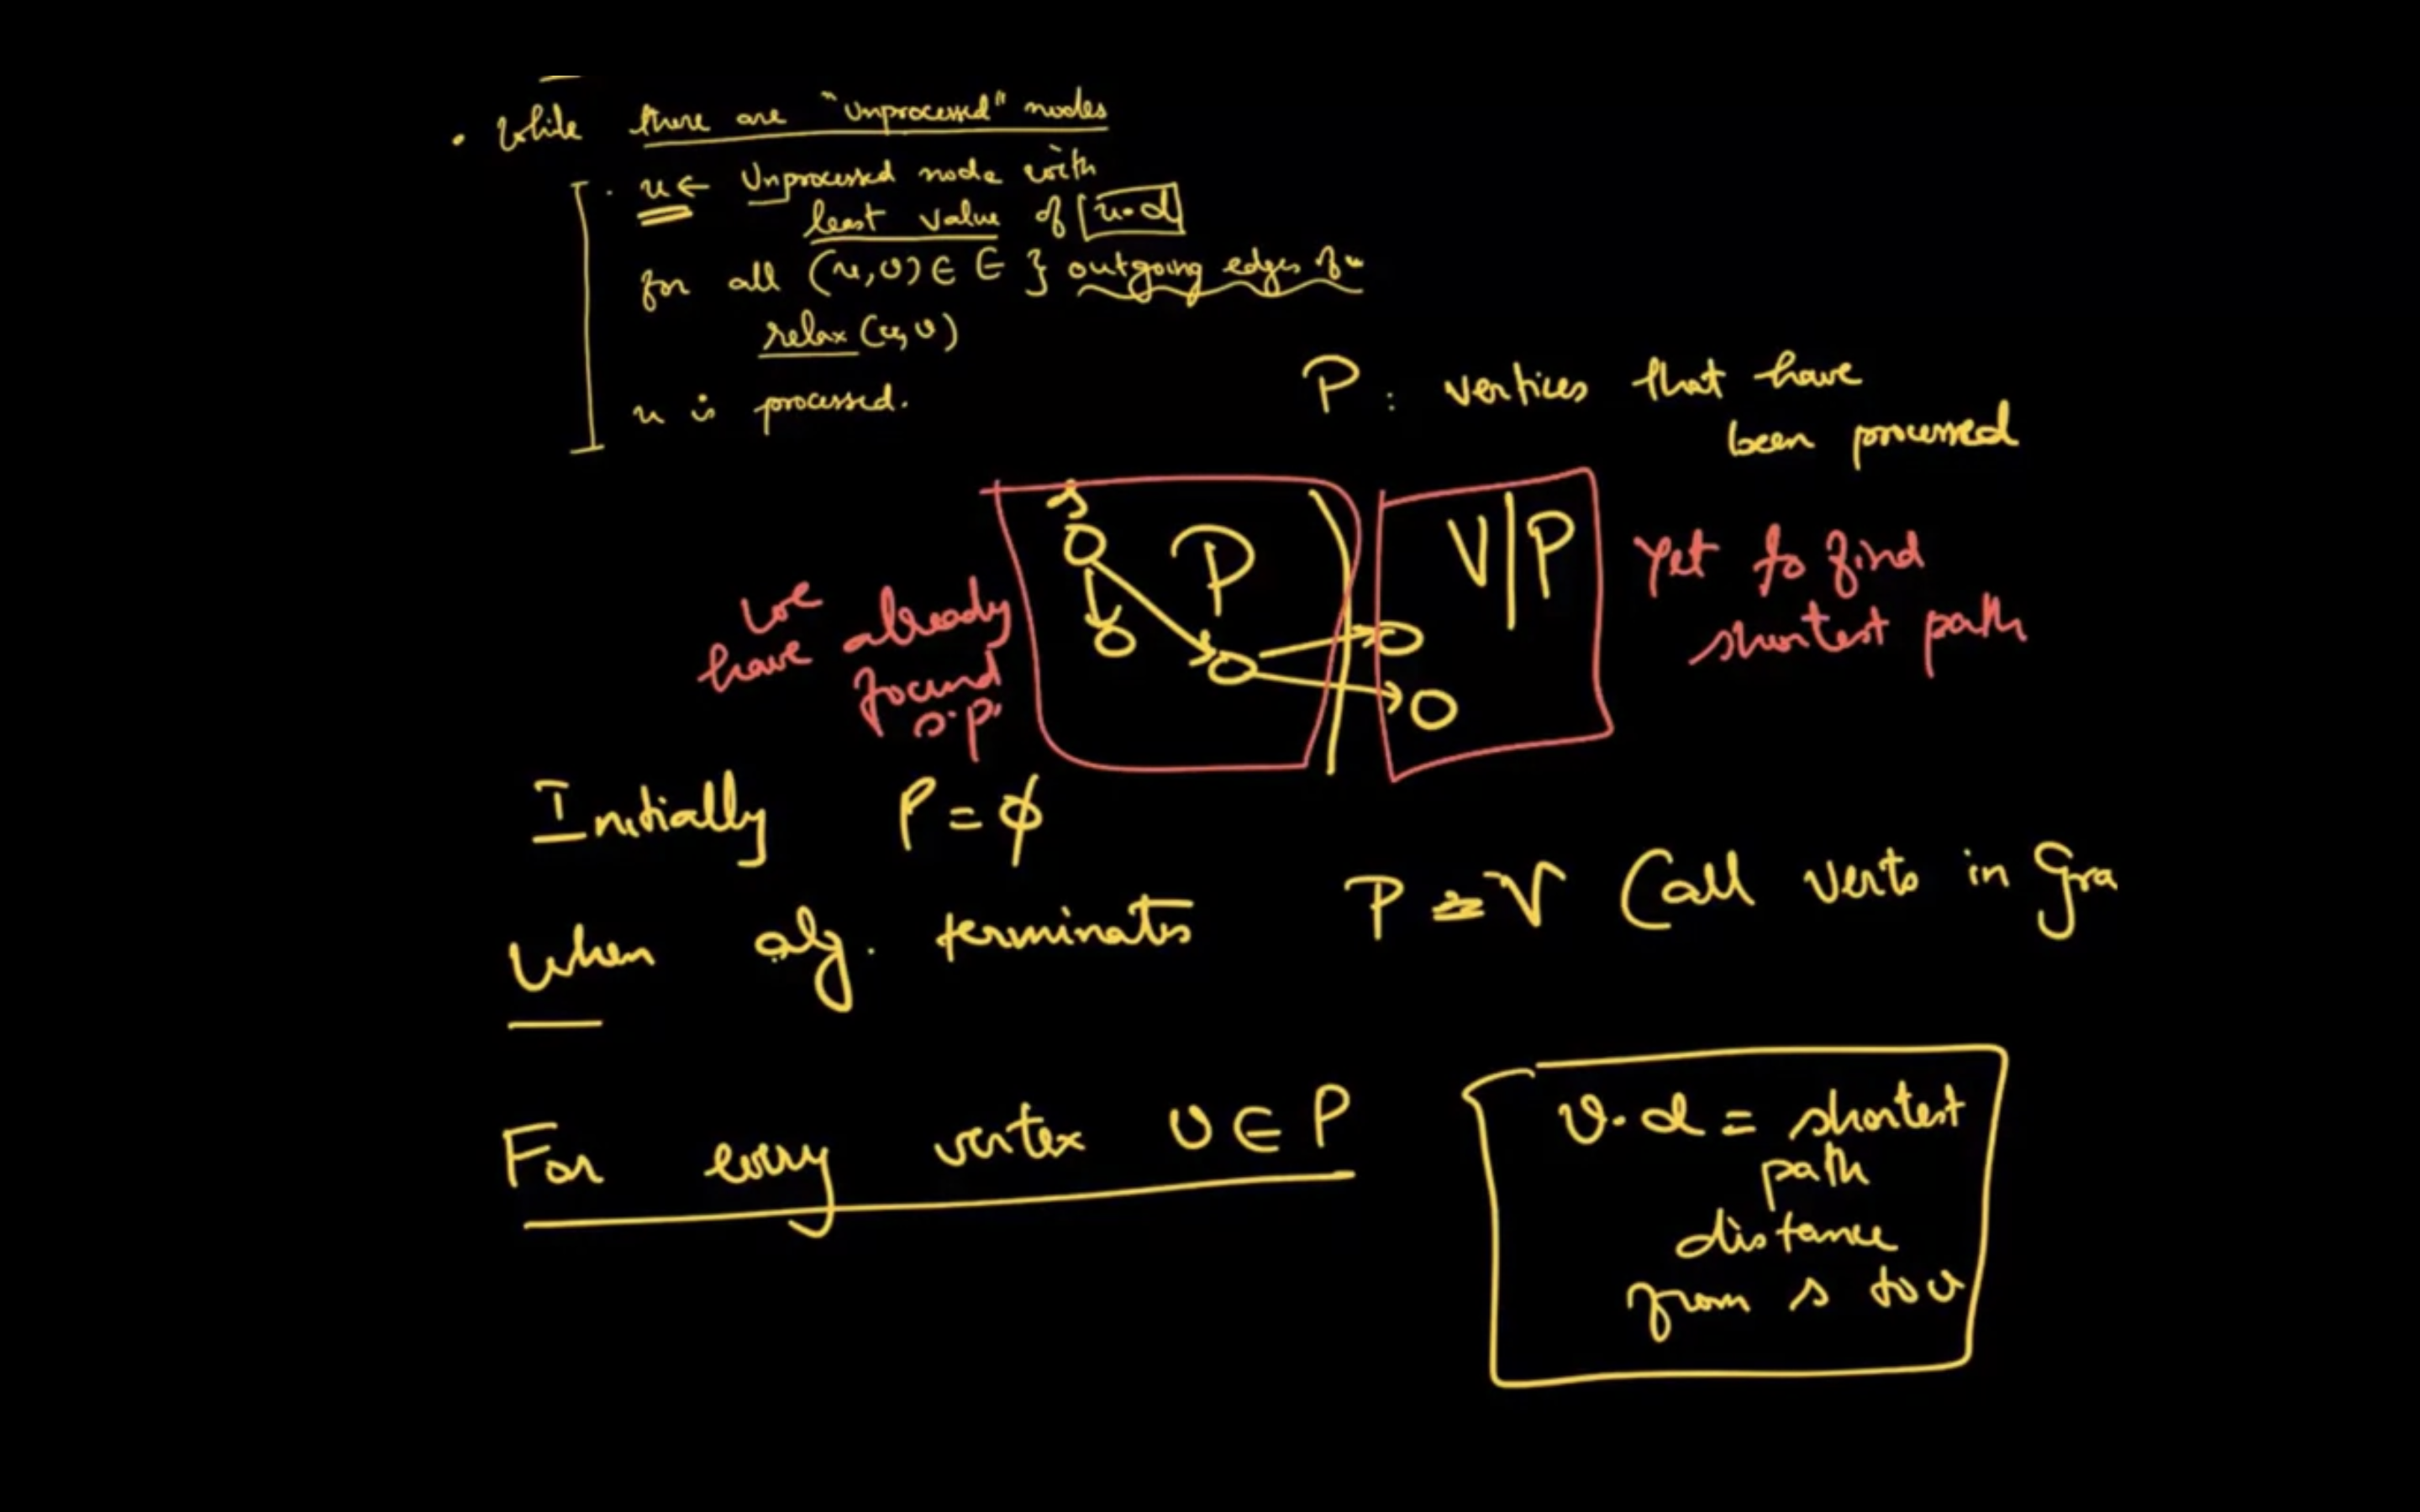 • While there are "Unprocessed" nodes
• u ← Unprocessed node with
least value of u.d
for all (u,v) ∈ E } outgoing edges of u
relax (u,v)
u is processed.
P : vertices that have
been processed
s
P
V|P
We
have already
found
s.p.
Yet to find
shortest path
Initially P = ϕ
When alg. terminates P = V (all verts in Gra
For every vertex v ∈ P
v.d = shortest
path
distance
from s to v